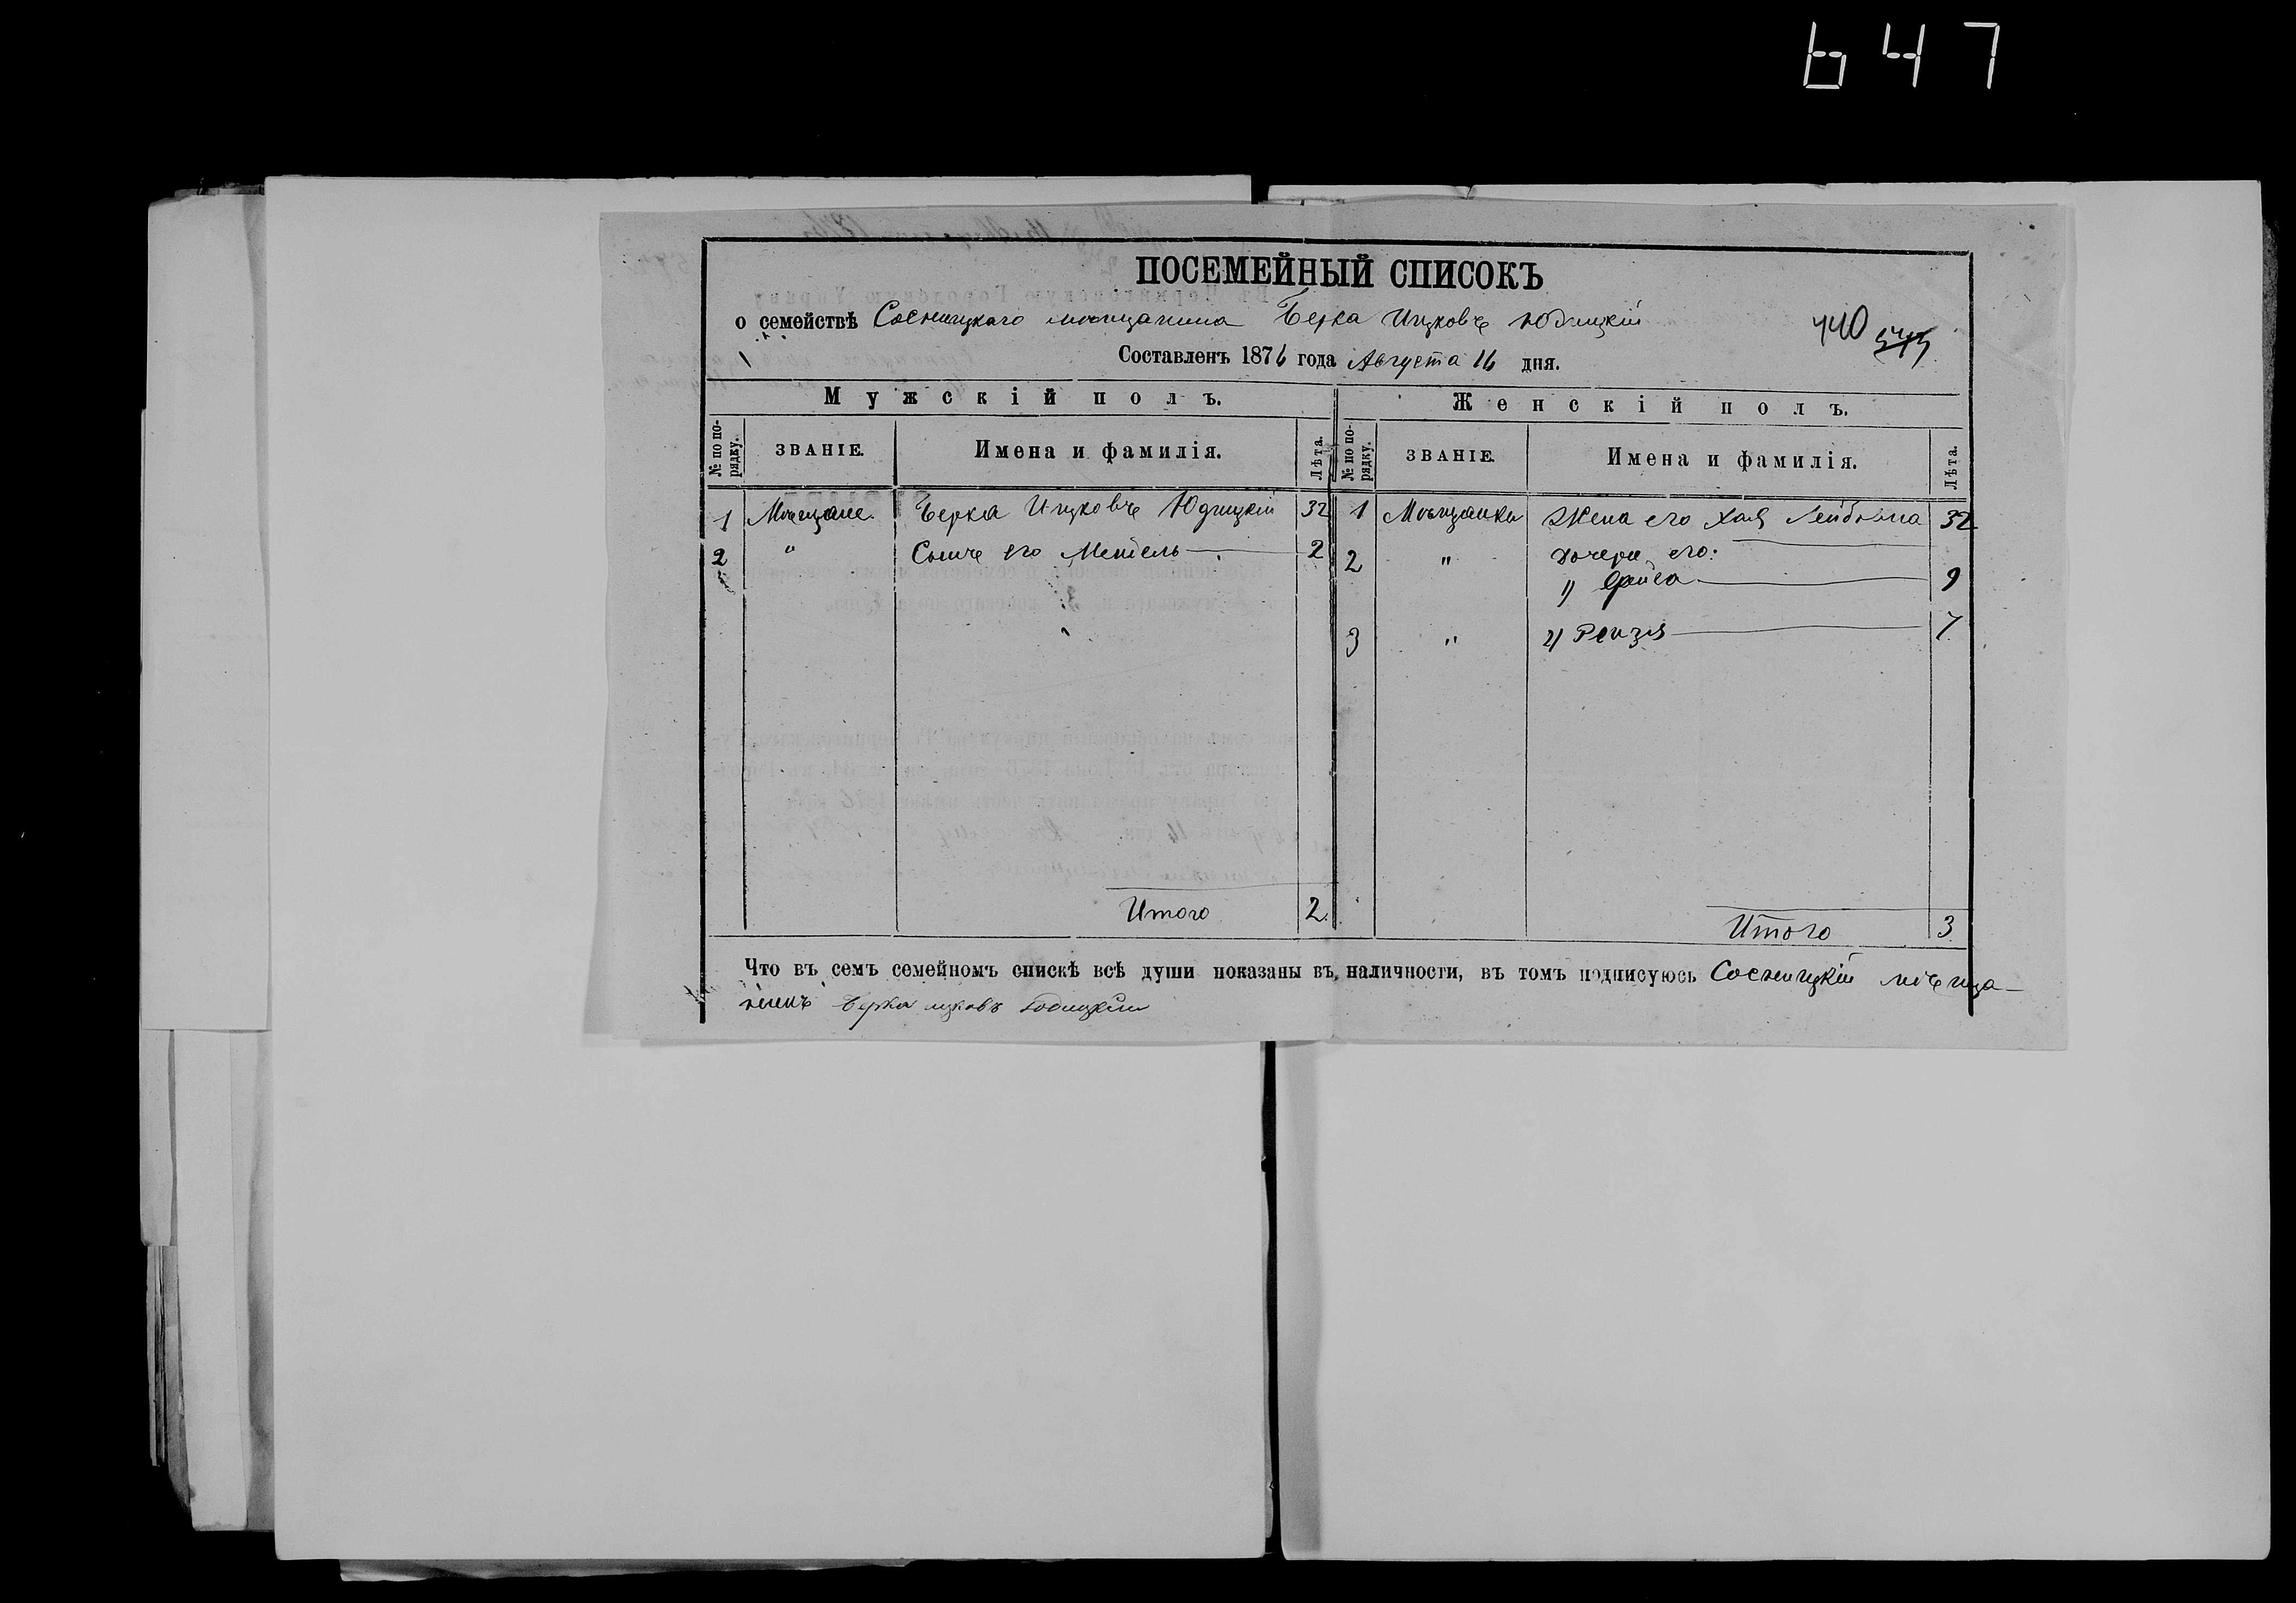 647
ПОСЕМЕЙНЫЙ СПИСОКЪ
о семействѣ Сосницкаго мѣщанина Берка Ицковъ Юдицкій
440 545
Составленъ 1876 года Августа 16 дня.
Мужскій полъ.
Женскій полъ.
№ по порядку. ЗВАНІЕ. Имена и фамилія. Лѣта. № по порядку. ЗВАНІЕ. Имена и фамилія. Лѣта.
1 Мѣщане. Берка Ицковъ Юдицкій 32 1 Мѣщанки Жена его Хая Лейбовна 32
2 " Сынъ его Мендель 2 2 " дочери его:
1) Фейга 9
3 " 2) Рейзя 7
Итого 2.
Итого 3
Что въ семъ семейномъ спискѣ всѣ души показаны въ наличности, въ томъ подписуюсь Сосницкій мѣща-
нинъ Берка ицковъ Юдицкій